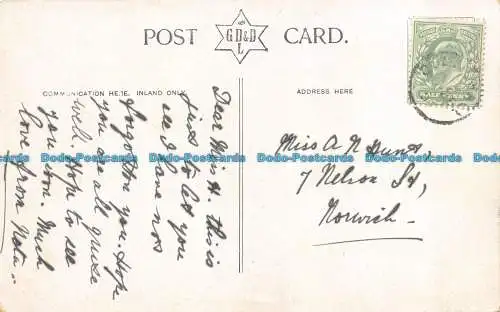 POST CARD.
G.D.&D
L
COMMUNICATION HERE. INLAND ONLY.
ADDRESS HERE
Dear Miss H. this is
just to let you
see I have not
forgotten you. Hope
you are all quite
well. Hope to see
you soon. Much
love from Neta.
Miss A N
7 Nelson St,
Norwich.
HALF PENNY
Dodo-Postcards Dodo-Postcards Dodo-Postcards Dodo-Postcards Dodo-Postcards Dodo-Postcards